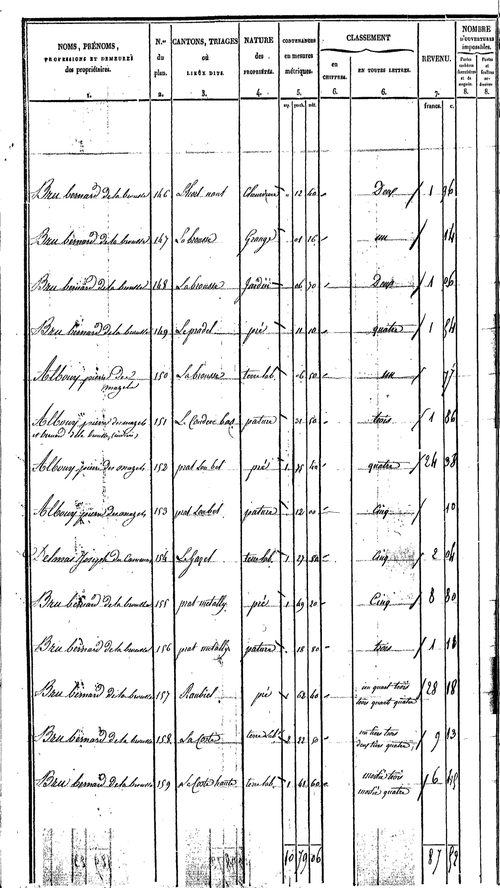 NOMS, PRÉNOMS, PROFESSIONS ET DEMEURES des propriétaires. N.os du plan. CANTONS, TRIAGES où LIEUX DITS. NATURE des PROPRIÉTÉS. CONTENANCES en mesures métriques. CLASSEMENT en CHIFFRES. EN TOUTES LETTRES. REVENU. NOMBRE D'OUVERTURES imposables.
1. 2. 3. 4. 5. 6. 6. 7. 8. 8.
francs. c.
Bru bernard de la brousse 146 12 40 Deux 1 96
Bru bernard de la brousse 147 La brousse Grange 01 16 un 14
Bru bernard de la brousse 148 La brousse Jardin 06 70 Deux 1 06
Bru bernard de la brousse 149 Le pradel pré 11 10 quatre 1 54
Albouy pierre des mazels 150 La brousse terre lab. 06 50 un 77
Albouy pierre des mazels 151 Le Couderc bas pature 31 50 trois 1 86
et bernard de la brousse,
Albouy pierre des mazels 152 prat Loubet pré 1 75 quatre 24 38
Albouy pierre des mazels 153 prat Loubet pature 12 00 Cinq 10
Delmas Joseph du 154 Le Gazel terre lab. 1 27 50 Cinq 2 04
Bru bernard de la brousse 155 prat metally pré 1 69 20 Cinq 8 80
Bru bernard de la brousse 156 prat metally pature 18 80 trois 1 18
Bru bernard de la brousse 157 Roubiel pré 1 62 60 un quart trois trois quart quatre 28 18
Bru bernard de la brousse 158 La Coste terre lab. 2 22 un tiers trois deux tiers quatre 9 13
Bru bernard de la brousse 159 La Coste haute terre lab. 1 60 moitié trois moitié quatre 6
10 79 06 87